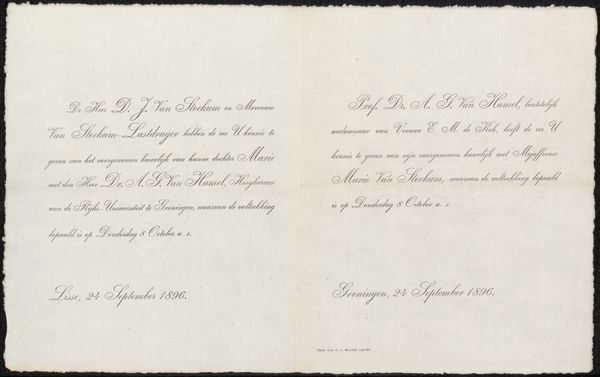 De Heer D. J. Van Stockum en Mevrouw
Van Stockum-Lastdrager hebben de eer U kennis te
geven van het voorgenomen huwelijk van hunne dochter Marie
met den Heer Dr. A. G. Van Hamel, Hoogleeraar
aan de Rijks-Universiteit te Groningen, waarvan de voltrekking
bepaald is op Donderdag 8 October a. s.
Lisse, 24 September 1896.
Prof. Dr. A. G. Van Hamel, laatstelijk
weduwnaar van Vrouwe E. M. de Kok, heeft de eer U
kennis te geven van zijn voorgenomen huwelijk met Mejuffrouw
Marie Van Stockum, waarvan de voltrekking bepaald
is op Donderdag 8 October a. s.
Groningen, 24 September 1896.